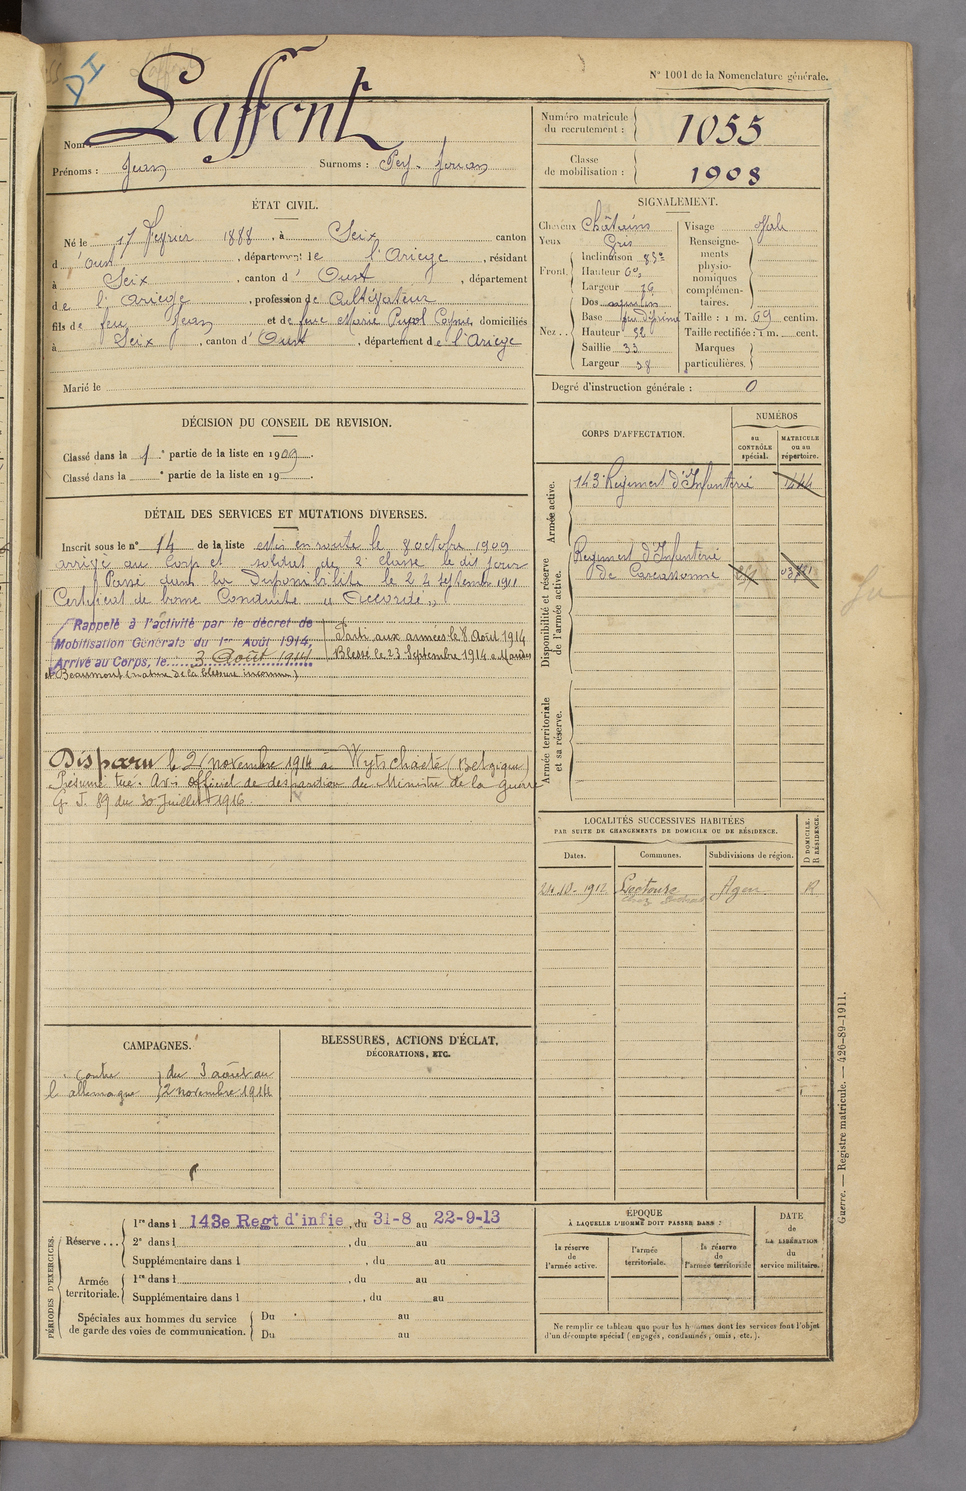 DI
N° 1001 de la Nomenclature générale.
Nom : Laffont
Prénoms : Jean Surnoms : Pey-Jouan
Numéro matricule du recrutement : 1055
Classe de mobilisation : 1908
ÉTAT CIVIL.
Né le 17 Février 1888, à Seix canton
d'Oust, département de l'Ariège, résidant
à Seix, canton d'Oust, département
de l'Ariège, profession de Cultivateur
fils de feu Jean et de feue Marie Pujol domiciliés
à Seix, canton d'Oust, département de l'Ariège
Marié le
SIGNALEMENT.
Cheveux Châtains
Yeux Gris
Front. Inclinaison
Hauteur
Largeur
Nez. Dos
Base
Hauteur 52
Saillie 33
Largeur 38
Visage Ovale
Renseignements physionomiques complémentaires.
Taille : 1 m. 69 centim.
Taille rectifiée : 1 m. cent.
Marques particulières.
Degré d'instruction générale : 0
DÉCISION DU CONSEIL DE REVISION.
Classé dans la 1e partie de la liste en 1909.
Classé dans la e partie de la liste en 19 .
CORPS D'AFFECTATION.
NUMÉROS
au CONTRÔLE spécial.
MATRICULE ou au répertoire.
Armée active.
143e Régiment d'Infanterie 1444
Disponibilité et réserve de l'armée active.
Régiment d'Infanterie
de Carcassonne
Armée territoriale et sa réserve.
DÉTAIL DES SERVICES ET MUTATIONS DIVERSES.
Inscrit sous le n° 14 de la liste mis en route le 8 octobre 1909
arrivé au Corps et soldat de 2 classe le dit jour
Passé dans la Disponibilité le 24 septembre 1911
Certificat de bonne Conduite "Accordé"
Rappelé à l'activité par le décret de
Mobilisation Générale du 1er Août 1914,
Arrivé au Corps, le 3 Août 1914
Parti aux armées le 8 Août 1914
Blessé le 23 Septembre 1914 a
et Beaumont (nature de la blessure inconnue)
Disparu le 2 novembre 1914 à Wytschaëte (Belgique)
Présumé tué. Avis officiel de disparition du Ministre de la guerre
G. J. 89 du 30 Juillet 1916.
LOCALITÉS SUCCESSIVES HABITÉES
PAR SUITE DE CHANGEMENTS DE DOMICILE OU DE RÉSIDENCE.
Dates. Communes. Subdivisions de région. D DOMICILE. R RÉSIDENCE.
24.10.1912 Lectoure Agen R
CAMPAGNES.
contre l'allemagne } du 3 août au 2 novembre 1914
BLESSURES, ACTIONS D'ÉCLAT,
DÉCORATIONS, ETC.
PÉRIODES D'EXERCICES.
Réserve... 1re dans l 143e Regt d'infie, du 31-8 au 22-9-13
2e dans l , du au
Supplémentaire dans l , du au
Armée territoriale. 1re dans l , du au
Supplémentaire dans l , du au
Spéciales aux hommes du service de garde des voies de communication. Du au
Du au
ÉPOQUE
À LAQUELLE L'HOMME DOIT PASSER DANS :
la réserve de l'armée active.
l'armée territoriale.
la réserve de l'armée territoriale
DATE de LA LIBÉRATION du service militaire.
Ne remplir ce tableau que pour les hommes dont les services font l'objet
d'un décompte spécial (engagés, condamnés, omis, etc.).
Guerre. — Registre matricule. — 426-89-1911.